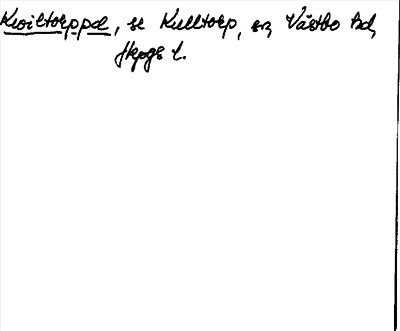 Kwiltorppa, se Kulltorp, sn, Västbo hd,
Jkpgs l.